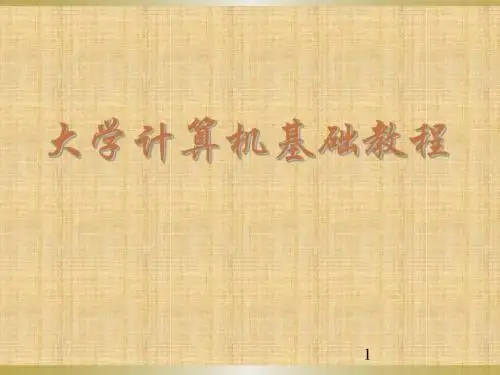 大学计算机基础教程
1